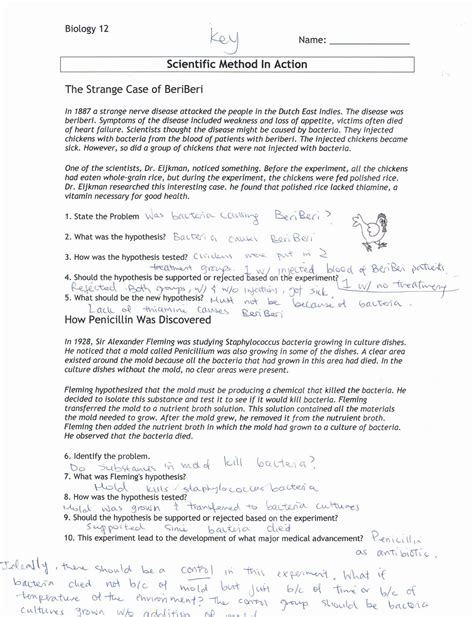 Biology 12
Key
Name:
Scientific Method In Action
The Strange Case of BeriBeri
In 1887 a strange nerve disease attacked the people in the Dutch East Indies. The disease was
beriberi. Symptoms of the disease included weakness and loss of appetite, victims often died
of heart failure. Scientists thought the disease might be caused by bacteria. They injected
chickens with bacteria from the blood of patients with beriberi. The injected chickens became
sick. However, so did a group of chickens that were not injected with bacteria.
One of the scientists, Dr. Eijkman, noticed something. Before the experiment, all the chickens
had eaten whole-grain rice, but during the experiment, the chickens were fed polished rice.
Dr. Eijkman researched this interesting case. he found that polished rice lacked thiamine, a
vitamin necessary for good health.
1. State the Problem Was bacteria causing BeriBeri?
2. What was the hypothesis? Bacteria causes BeriBeri
3. How was the hypothesis tested? Chickens were put in 2
treatment groups. 1 w/ injected blood of BeriBeri patients
4. Should the hypothesis be supported or rejected based on the experiment? 1 w/ no treatment
Rejected. Both groups, w/ & w/o injections, got sick.
5. What should be the new hypothesis? Must not be because of bacteria.
Lack of thiamine causes BeriBeri
How Penicillin Was Discovered
In 1928, Sir Alexander Fleming was studying Staphylococcus bacteria growing in culture dishes.
He noticed that a mold called Penicillium was also growing in some of the dishes. A clear area
existed around the mold because all the bacteria that had grown in this area had died. In the
culture dishes without the mold, no clear areas were present.
Fleming hypothesized that the mold must be producing a chemical that killed the bacteria. He
decided to isolate this substance and test it to see if it would kill bacteria. Fleming
transferred the mold to a nutrient broth solution. This solution contained all the materials
the mold needed to grow. After the mold grew, he removed it from the nutrient broth.
Fleming then added the nutrient broth in which the mold had grown to a culture of bacteria.
He observed that the bacteria died.
6. Identify the problem.
Do substances in mold kill bacteria?
7. What was Fleming's hypothesis?
Mold kills staphylococcus bacteria
8. How was the hypothesis tested?
Mold was grown & transferred to bacteria cultures
9. Should the hypothesis be supported or rejected based on the experiment?
Supported since bacteria died
10. This experiment lead to the development of what major medical advancement? Penicillin
as antibiotic.
Ideally, there should be a control in this experiment. What if
bacteria died not b/c of mold but just b/c of time or b/c of
temperature of the environment? The control group should be bacteria
cultures grown w/o addition of mold